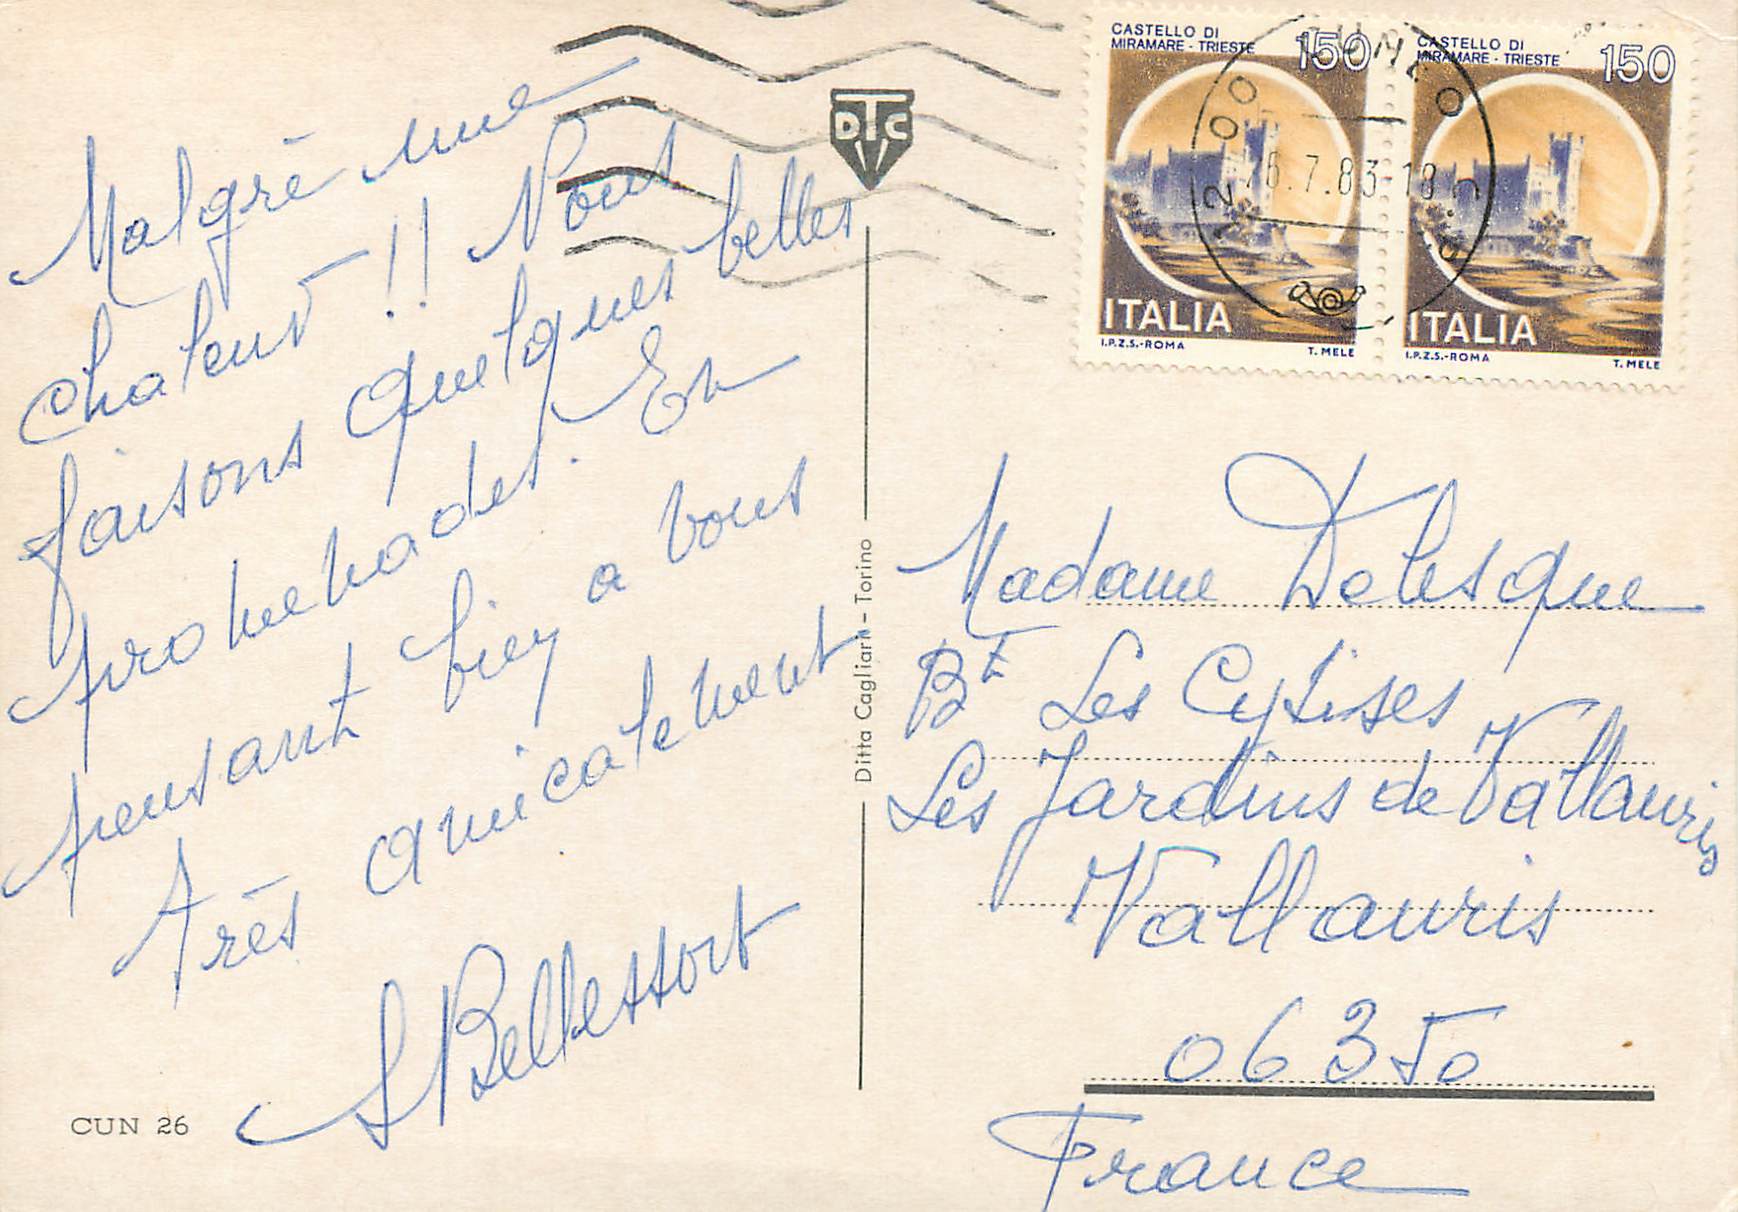 Malgré une
chaleur !! Nous
faisons quelques belles
promenades. En
pensant bien a vous
Très amicalement
S Bellessort
CUN 26
DTC
Ditta Cagliari - Torino
CASTELLO DI
MIRAMARE - TRIESTE
150
ITALIA
I.P.Z.S.-ROMA
T. MELE
CASTELLO DI
MIRAMARE - TRIESTE
150
ITALIA
I.P.Z.S.-ROMA
T. MELE
12100 CUNEO
.7.83-18
Madame Delesque
Bt Les Cytises
Les Jardins de Vallauris
Vallauris
06350
France